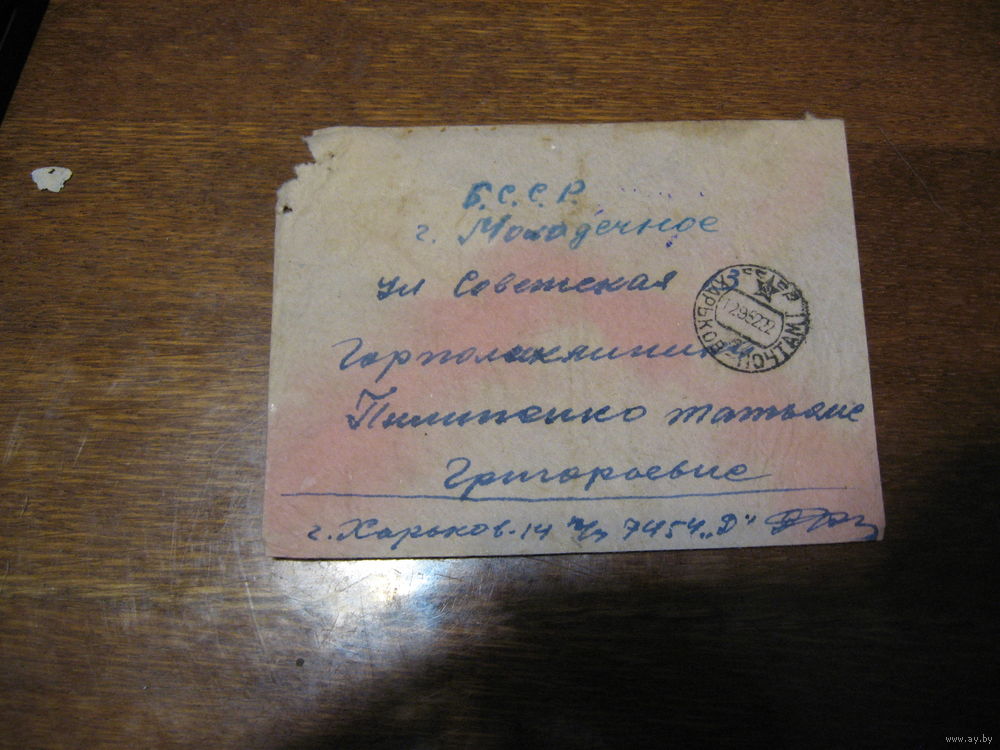 Б.С.С.Р.
г. Молодечное
ул Советская
Горполиклиника
Пилипенко Татьяне
Григорьевне
г. Харьков-14 п/я 7454 „Д"
ХАРЬКОВ ПОЧТАМТ
СССР
www.ay.by